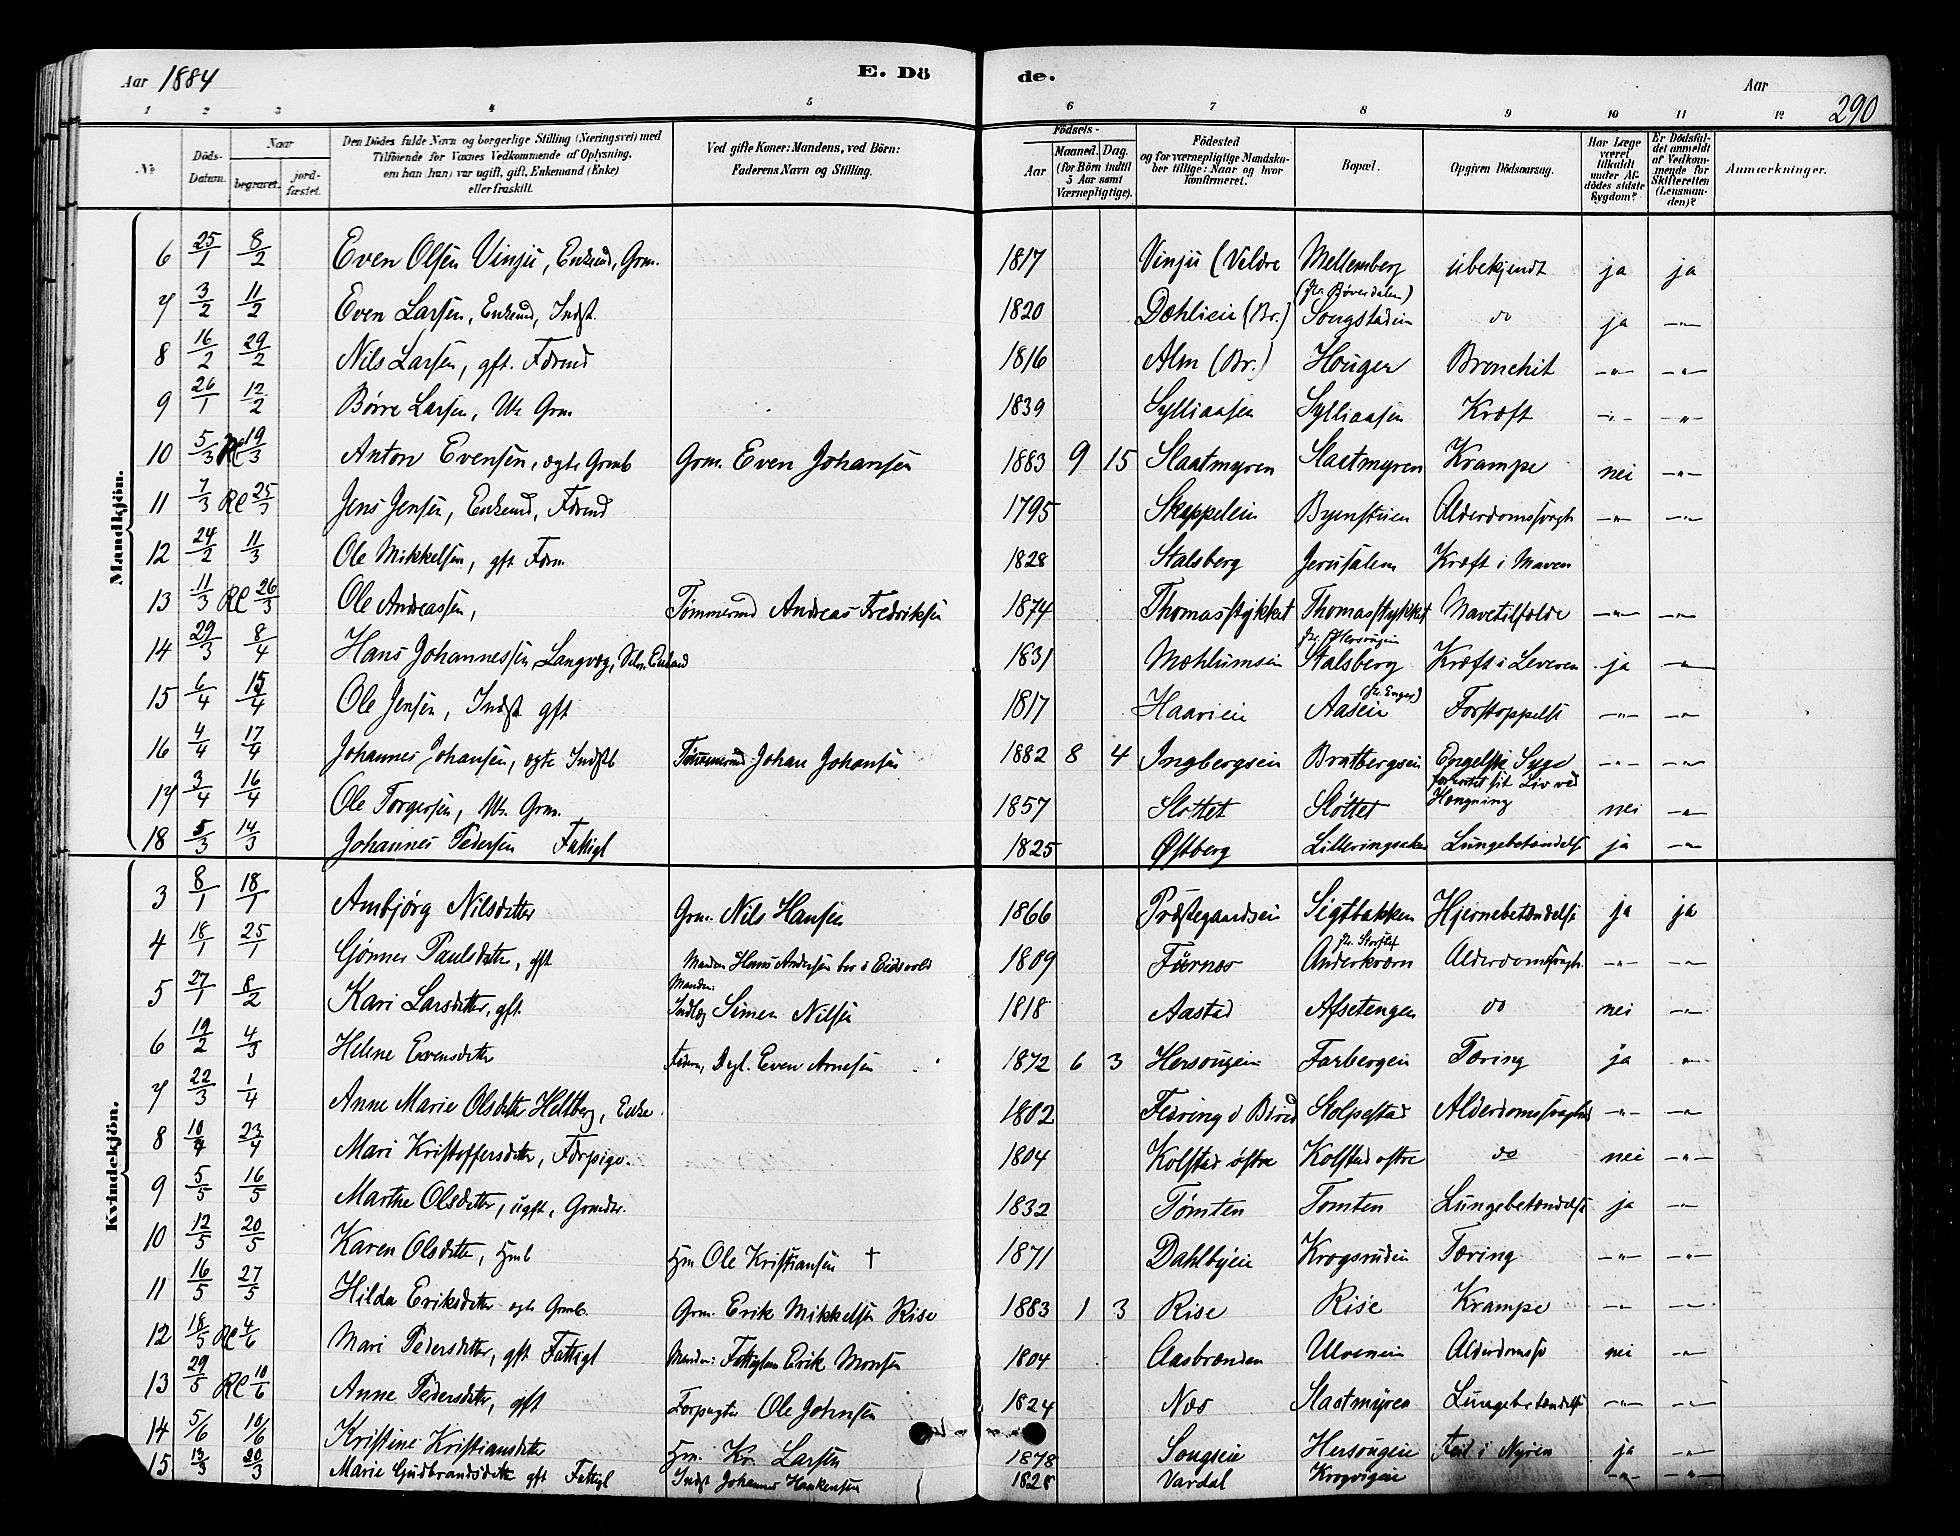 Aar 1884
E. Dö
de.
Aar
290
1 2 3 4 5 6 7 8 9 10 11 12
No
Döds-Datum.
Naar
begravet.
jord-fæstet.
Den Dödes fulde Navn og borgerlige Stilling (Næringsvei) med
Tilföiende for Voxnes Vedkommende af Oplysning,
om han (hun) var ugift, gift, Enkemand (Enke)
eller fraskilt.
Ved gifte Koner: Mandens, ved Börn:
Faderens Navn og Stilling.
Födsels-
Aar
Maaned. Dag.
(for Börn indtil
5 Aar samt
Værnepligtige).
Födested
og for værnepligtige Mandska-
ber tillige: Naar og hvor
konfirmeret.
Bopæl.
Opgiven Dödsaarsag.
Har Læge
været
tilkaldt
under Af-
dödes sidste
Sygdom?
Er Dödsfal-
det anmeldt
af Vedkom-
mende for
Skifteretten
(Lensman-
den)?
Anmærkninger.
Mandkjön.
6 25/1 8/2 Even Olsen Vinju, Enkemd, Grm. 1817 Vinju (Veldre Mellemberg ubekjendt ja ja
7 3/2 11/2 Even Larsen, Enkemd, Indst. 1820 Dæhlieie (Br.) (fr. Böverdalen) Songstadeie do ja -"-
8 16/2 29/2 Nils Larsen, gft. Fdrmd 1816 Alm (Br.) Hougen Bronchit -"- -"-
9 26/1 12/2 Börre Larsen, Uk Grm. 1839 Sylliaasen Sylliaasen Kræft -"- -"-
10 5/3 RC 19/3 Anton Evensen, ægte Grmb Grm. Even Johansen 1883 9 15 Slaatmyren Slaatmyren Krampe nei -"-
11 7/3 RC 25/3 Jens Jensen, Enkemd, Fdrmd 1795 Skeppeleie Byenstuen Alderdomssvagh -"- -"-
12 24/2 11/3 Ole Mikkelsen, gft Fdrm 1828 Stalsberg Jerusalem Kræft i Maven
13 11/3 RC 26/3 Ole Andreassen, Tömmermd Andreas Fredriksen 1874 Thomasstykket Thomasstykket Mavetilfælde -"- -"-
14 29/3 8/4 Hans Johannessen Langvæg, Enkemd 1831 Mæhlumseie Stalsberg Kræft i Leveren ja -"-
15 6/4 15/4 Ole Jensen, Indst gft 1817 Haavieie Aaseie (fr. Enger) Forstoppelse -"- -"-
16 4/4 17/4 Johannes Johansen, ægte Indstb Tömmermd. Johan Johansen 1882 8 4 Ingbergseie Bratbergseie Engelske Syge -"- -"-
17 3/4 16/4 Ole Torgersen, Uk. Grm. 1857 Slottet Slöttet forkortet sit Liv ved Hængning nei -"-
18 5/3 14/3 Johannes Pedersen Fattigl 1825 Östberg Lilleringsaken Lungebetændelse ja -"-
Kvindekjön.
3 8/1 18/1 Ambjörg Nilsdatter Grm. Nils Hansen 1866 Præstegaardseie Sigtbakken Hjernebetændelse ja ja
4 18/1 25/1 Gjönner Paulsdatter, gft Manden Hans Andersen bor i Eidsvold 1809 Furnæs Anderkværn Alderdomssvagh. -"- -"-
5 27/1 8/2 Kari Larsdatter, gft. Manden: Indlæg Simen Nilsen 1818 Aastad Afsetengen do nei -"-
6 19/2 4/3 Helene Evensdatter Faderen, Dagl. Even Arnesen 1872 6 3 Hersougeie Farbergeie Tæring ja -"-
7 22/3 1/4 Anne Marie Olsdatter Heltberg, Enke. 1802 Fæiring i Biri Stolpestad Alderdomssvaghed -"- -"-
8 10/4 23/4 Mari Kristoffersdatter, Fdrpige. 1804 Kolstad östre Kolstad östre do nei -"-
9 5/5 16/5 Marthe Olsdatter, ugft, Grmdtr. 1832 Tömten Tomten Lungebetændelse ja -"-
10 12/5 20/5 Karen Olsdatter, Hmb Hm Ole Kristiansen † 1871 Dahlbyeie Krogsrudeie Tæring -"- -"-
11 16/5 27/5 Hilda Eriksdatter ægte Grmb. Grm. Erik Mikkelsen Rise 1883 1 3 Rise Rise Krampe -"- -"-
12 18/5 RC 4/6 Mari Pedersdatter, gft Fattigl Manden: Fattiglem Erik Monsen 1804 Aasbrænden Ulveneie Alderdomssv nei -"-
13 29/5 RC 10/6 Anne Pedersdatter, gft Forpagter Ole Johnsen 1824 Næs Slaatmyren Lungebetændelse -"- -"-
14 5/6 10/6 Kristine Kristiansdatter Hm. Kr. Larsen 1878 Songseie Hersougeie Feil i Nyren ja -"-
15 13/3 20/3 Marie Gudbrandsdatter gft Fattigl Indst Johannes Haakensen 1828 Vardal Krogvigeie -"- -"-